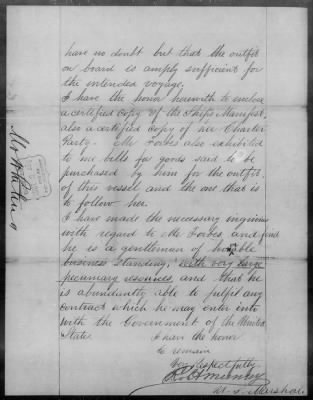 have no doubt but that the outfit
on board is amply sufficient for
the intended voyage.
I have the honor herewith to enclose
a certified copy of the Ships Manifest,
also a certified copy of her Charter
Party. Mr Forbes also exhibited
to me bills for goods said to be
purchased by him for the outfit,
of this vessel and the one that is
to follow her.
I have made the necessary inquiries
with regard to Mr Forbes and find
he is a gentleman of honorable
business standing, with very large
pecuniary resources, and that he
is abundantly able to fulfil any
contract which he may enter into
with the Government of the United
States. I have the honor
to remain
Very Respectfully
U. S. Marshal
Mr Whiting